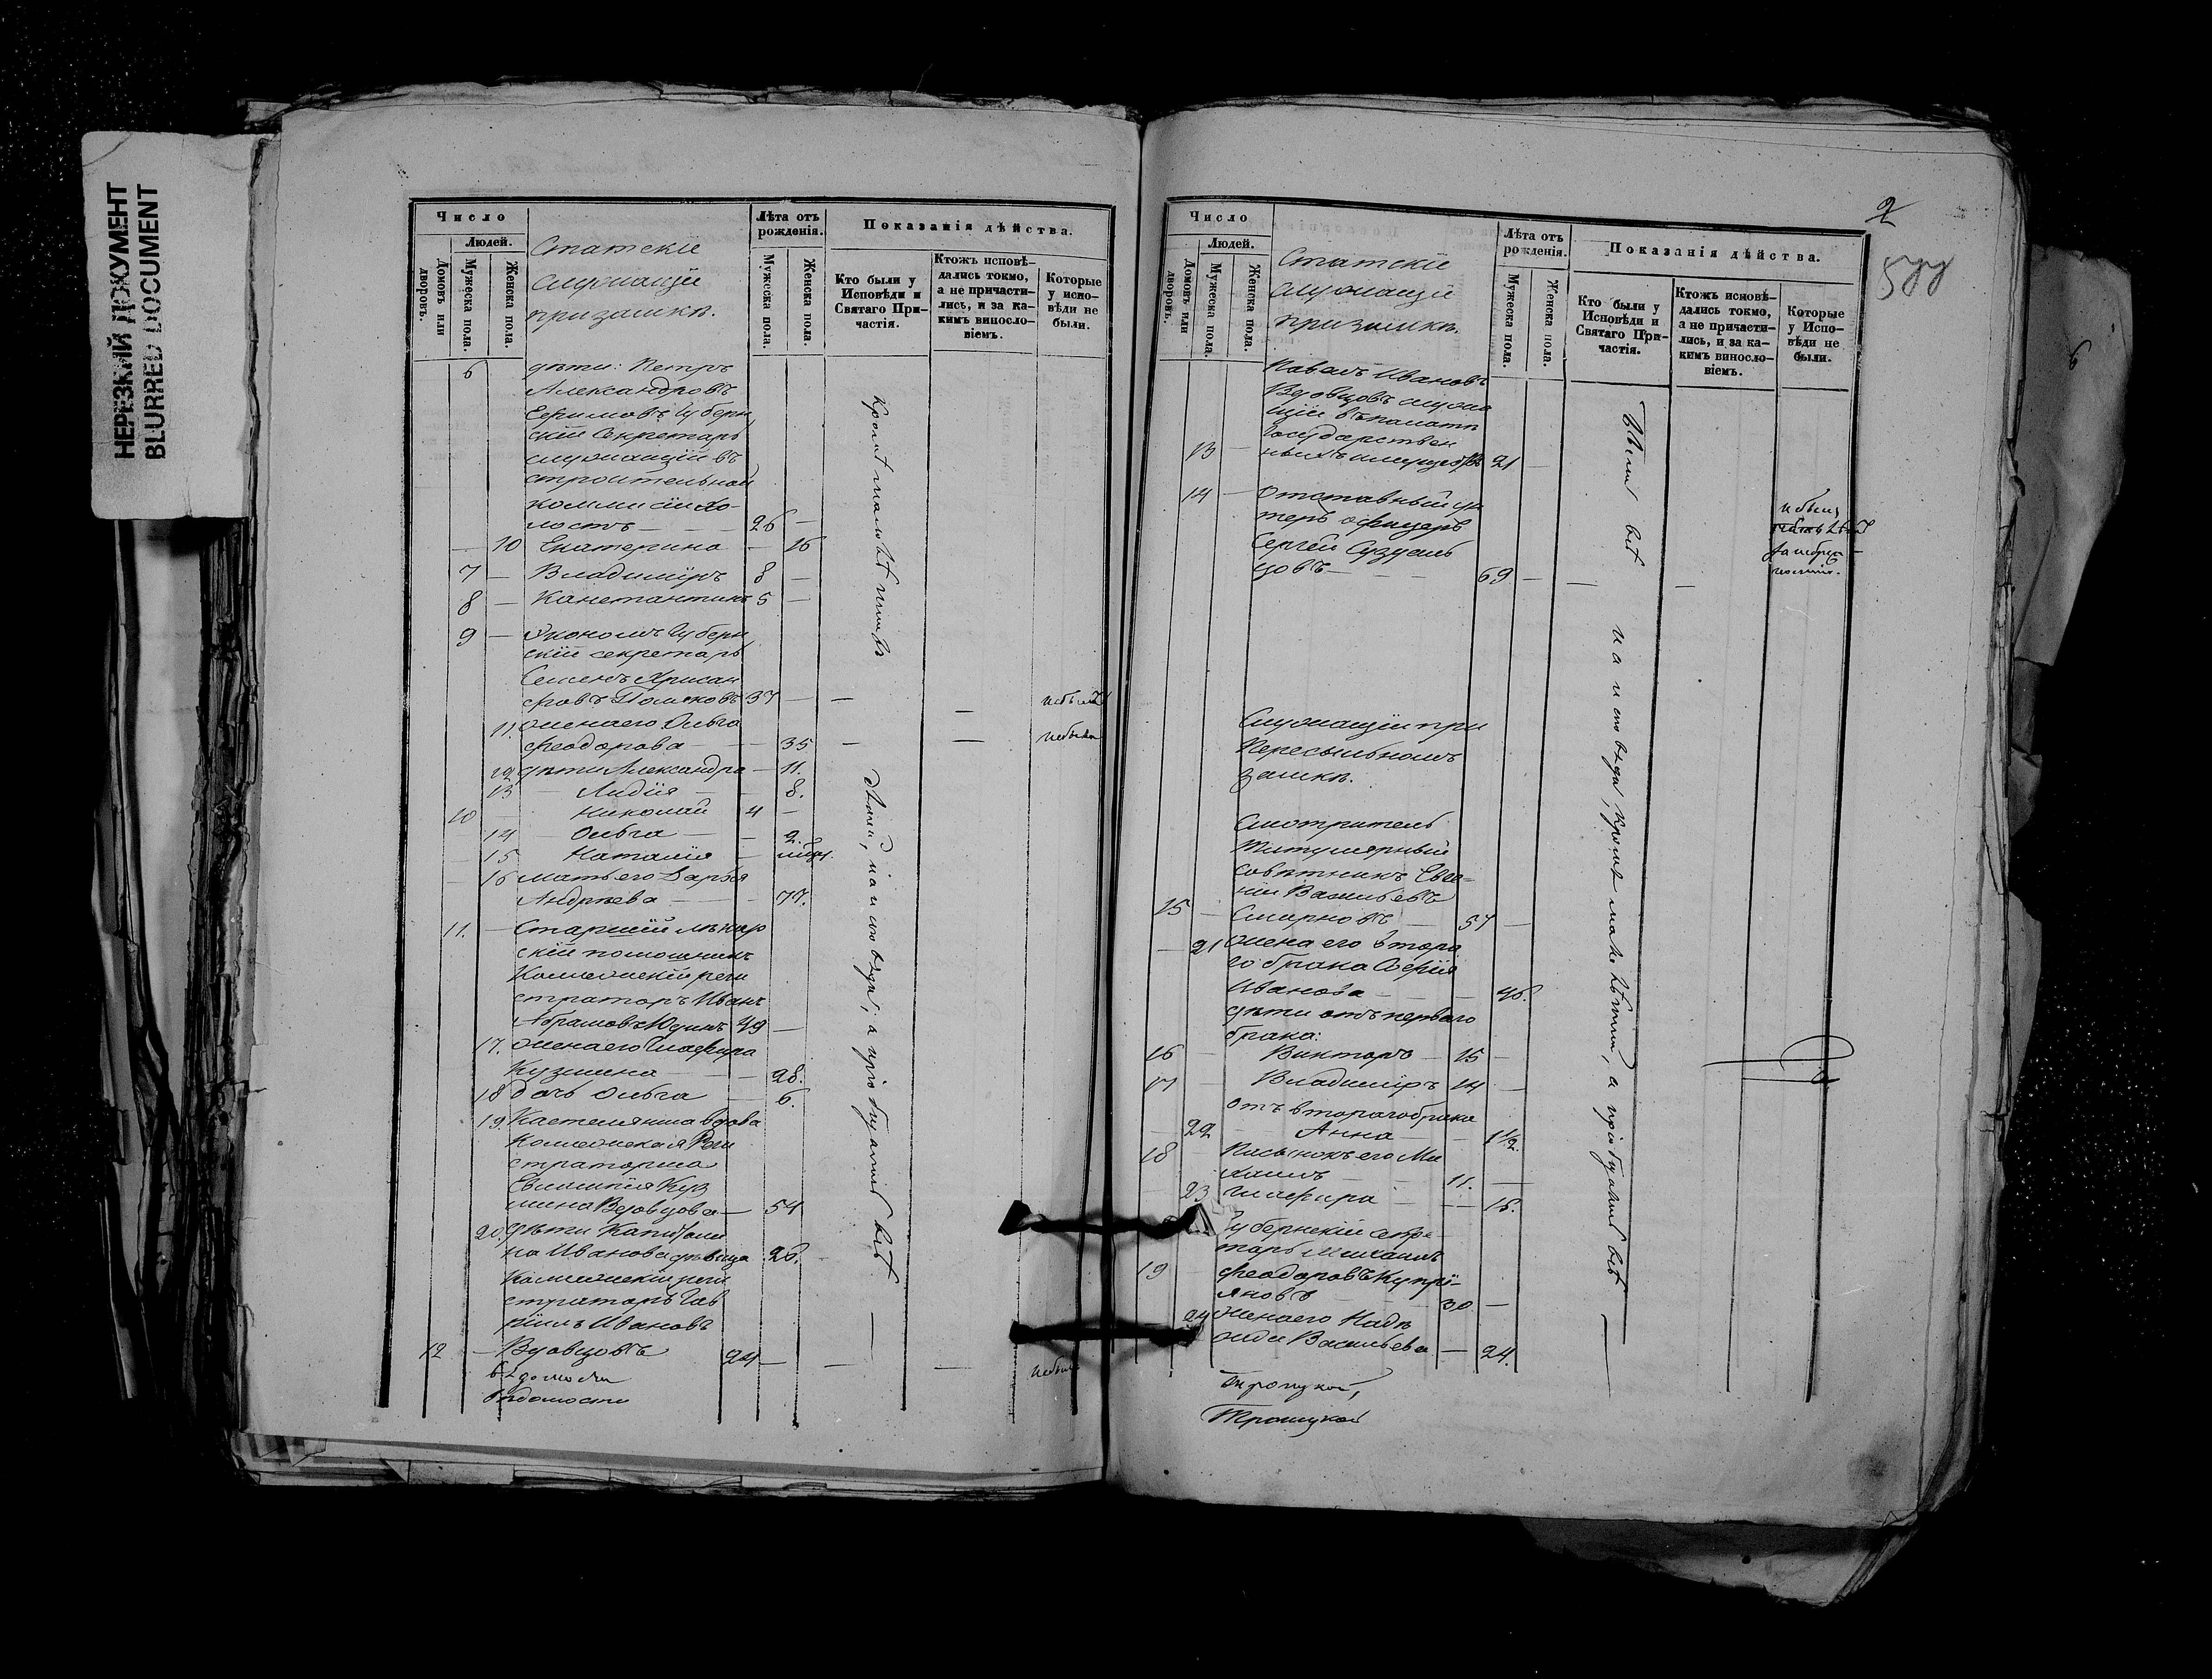 НЕРЕЗКИЙ ДОКУМЕНТ
BLURRED DOCUMENT
Число
Людей.
Домовъ или дворовъ.
Мужеска пола.
Женска пола.
Статскіе
служащіе
при замкѣ.
Лѣта отъ рожденія.
Мужеска пола.
Женска пола.
Показанія дѣйства.
Кто были у Исповѣди и Святаго При-частія.
Ктожъ исповѣ-дались токмо, а не причасти-лись, и за ка-кимъ виносло-віемъ.
Которые у испо-вѣди не были.
6 дѣти: Петръ
Александровъ
Губерн
скій Секретарь
служащій въ
строительной
коммисіи хо-
лостъ — 26 —
— 10 Екатерина — 16
7 — Владиміръ 8 —
8 — Констант​инъ 5 —
9 — Экономъ Губерн
скій секретарь
Семенъ Хрисан
фовъ Поляковъ 37 — — — небылъ
11. жена его Ольга
Феодорова — — 35 — — небыла
12 дѣти Александра — 11.
13 — Лидія — — 8.
10 — Николай 4 —
14 — Ольга — — 2.
— 15 Наталія —
— 16 мать его Дарья
Андреева — — 77.
11. — Старшій
скій помошникъ
Коллежскій реги
страторъ Иванъ
Абрамовъ Юдинъ 49 —
17. жена его Глафира
Кузмина — — 28.
18 дочь Ольга — 6.
19. Кастелянша вдова
Коллежская Реги
страторша
Евлампія Куз
мина Вдовцова — 54
20. дѣти Капитоли
на Иванова дѣвица 26.
Коллежскій реги
страторъ Гав
ріилъ Ивановъ
12 — Вдовцовъ 24 — — — небылъ
вѣдомости
вѣдомости
Кромѣ малолѣтнихъ дѣтей, на исповѣди, а пріобщались всѣ —
2
577
Число
Людей.
Домовъ или дворовъ.
Мужеска пола.
Женска пола.
Статскіе
служащіе
при замкѣ.
Лѣта отъ рожденія.
Мужеска пола.
Женска пола.
Показанія дѣйства.
Кто были у Исповѣди и Святаго При-частія.
Ктожъ исповѣ-дались токмо, а не причасти-лись, и за ка-кимъ виносло-віемъ.
Которые у Испо-вѣди не были.
Павелъ Ивановъ
Вдовцовъ служа
щій въ палатѣ
Государствен
13 — ныхъ имуществъ 21 —
14 — Отставный ун
теръ офицеръ
Сергей Суздаль
цовъ — — — 69 — — —
Служащіе при
Пересыльномъ
замкѣ.
Смотритель
Титулярный
совѣтникъ Евге-
ній Васильевъ
15 — Смирновъ — 57 —
— 21 жена его втора
го брака Софія
Иванова — — 46.
дѣти отъ перваго
брака:
16 — Викторъ — 15 —
17 — Владиміръ 14 —
отъ втораго брака
— 22 — Анна — — 1½.
18 — Пасынокъ его Ми
хаилъ — — 11. —
23 Глафира — — 16.
Губернскій секре
тарь Михаилъ
19 — Феодоровъ Купрі-
яновъ — — 30 —
24 жена его Наде
жда Васильева — 24.
Троицкой,
Троицкой
Были всѣ на исповѣди, кромѣ малолѣтнихъ, а пріобщались всѣ —